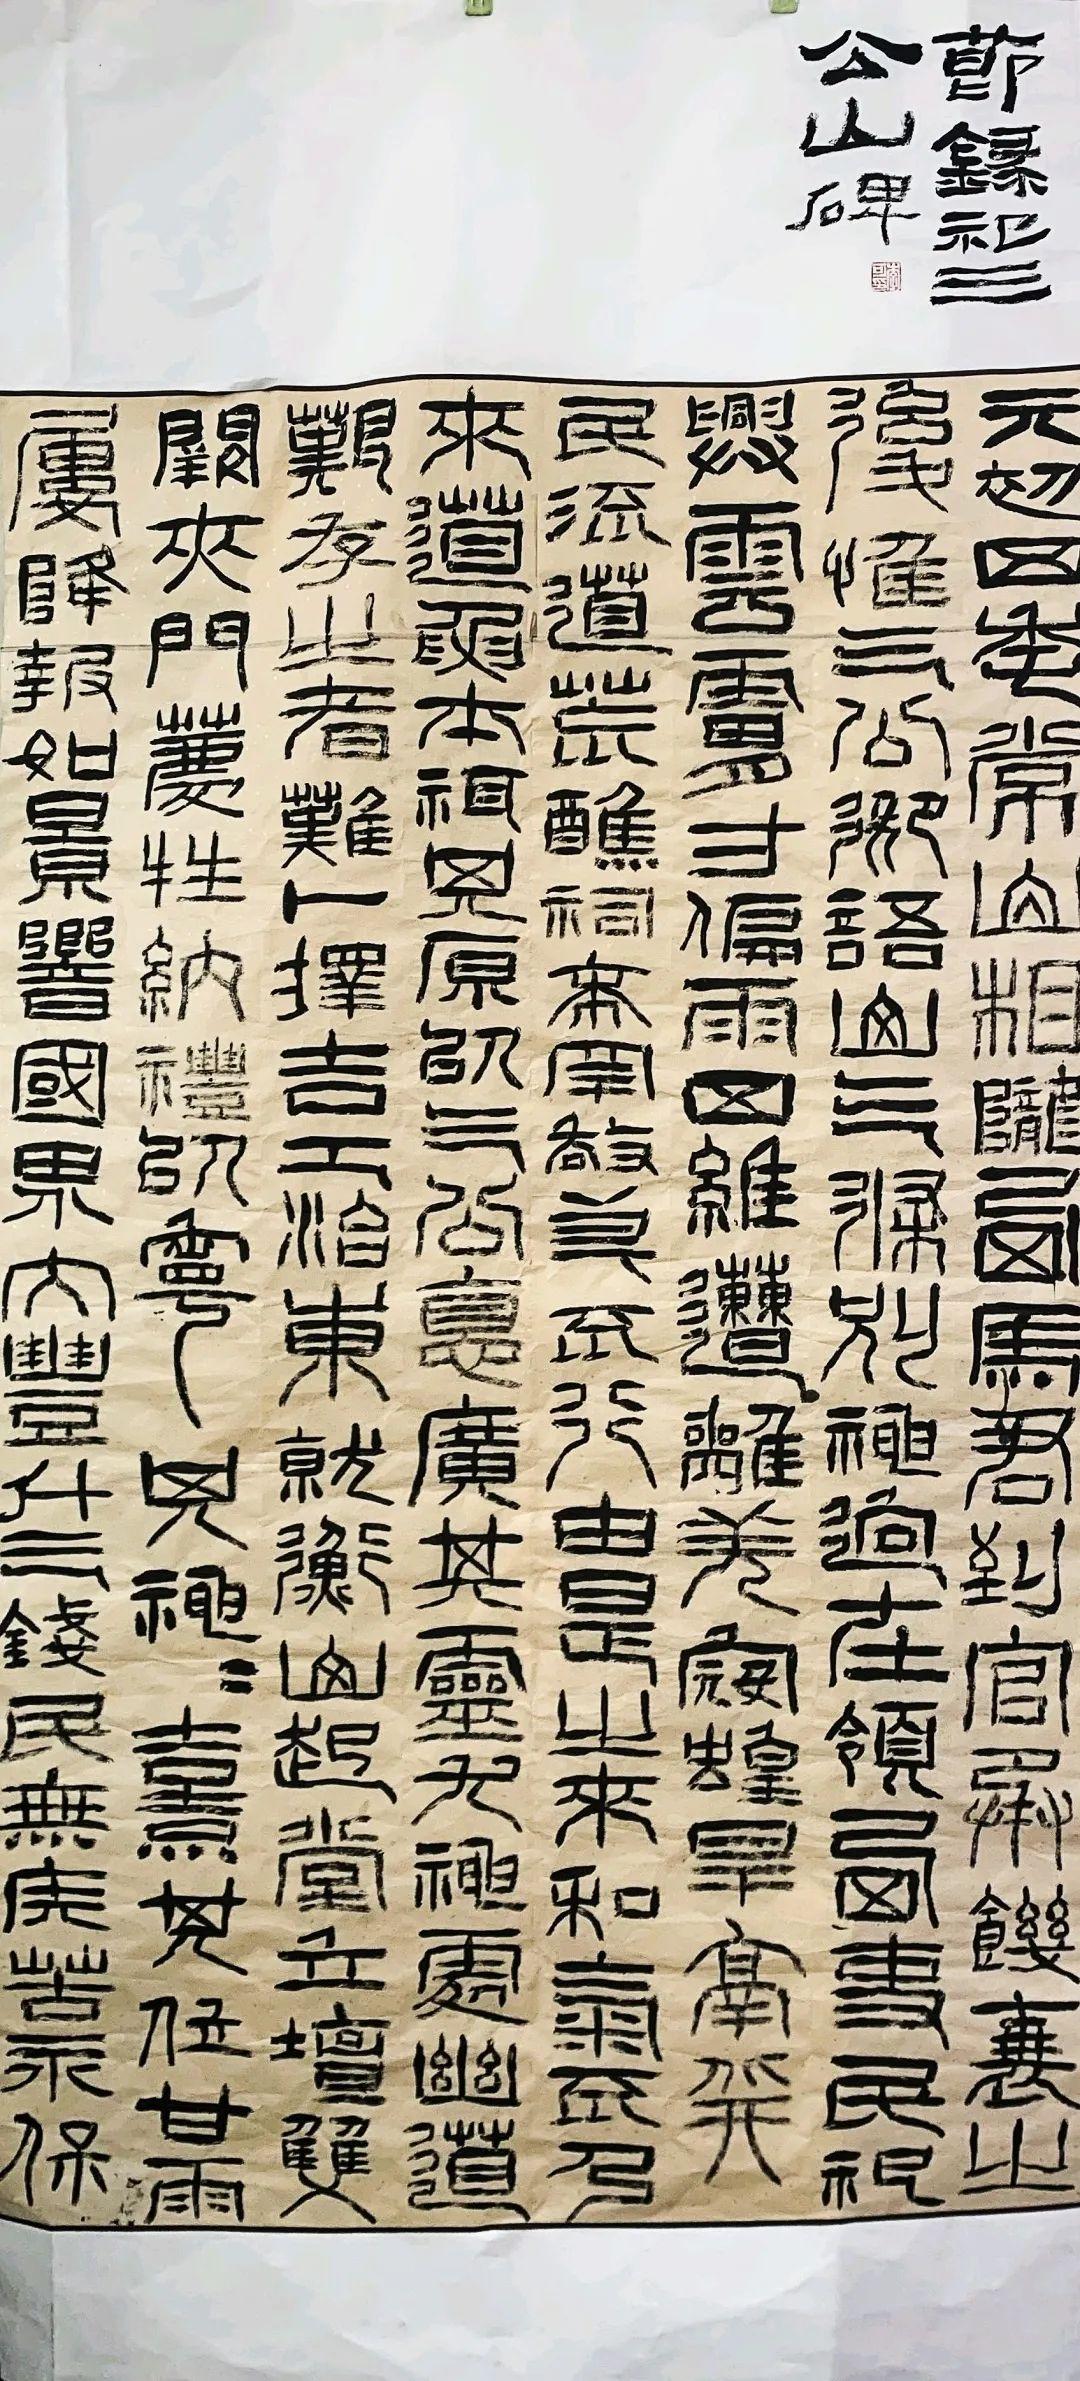 節錄祀三
公山碑
元初四年常山相隴西馮君到官承饑衰之
後惟三公御語山三條別神迥在領西吏民祀
興雲膚寸偏雨四維遭離羌寇蝗旱鬲并
民流道荒醮祠希罕敬奠不行由是之來和氣不臻
來道要本祖其原以三公德廣其靈尤神處幽道
艱存之者難卜擇吉土治東就衡山起堂立壇雙
闕夾門薦牲納禮以寧其神神熹其位甘雨
屢降報如景響國界大豐升三錢民無疾苦永保